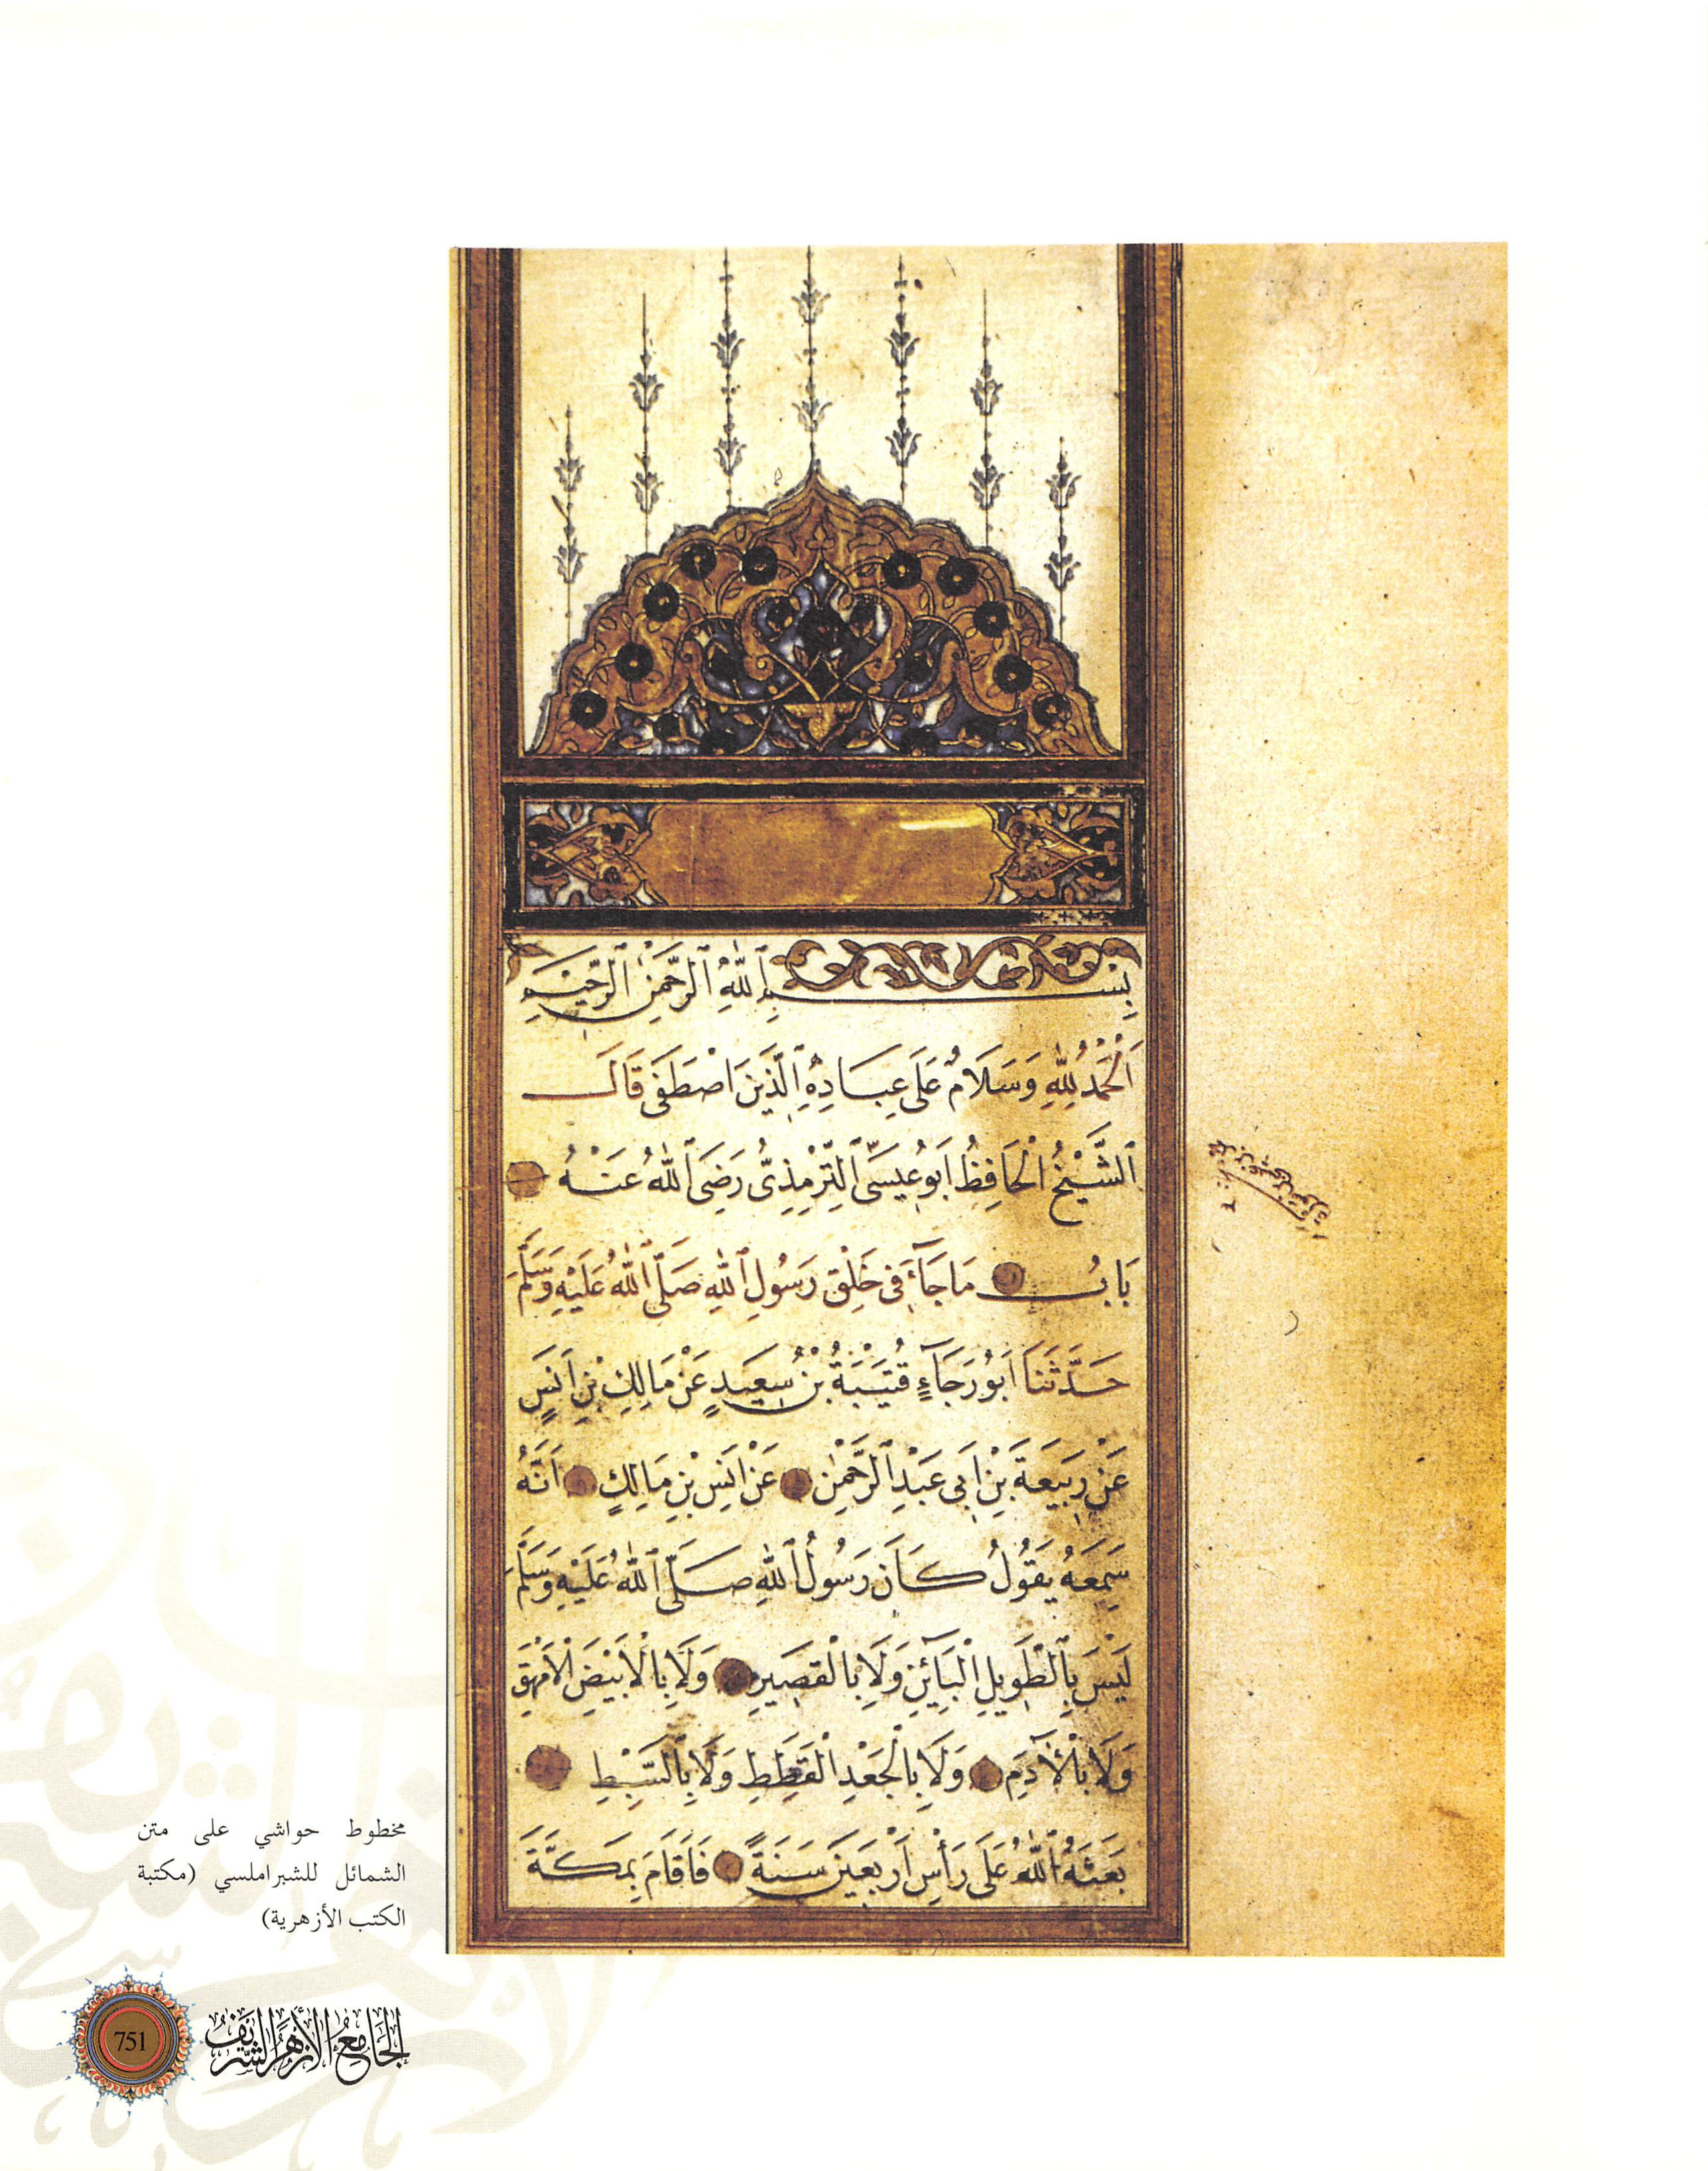 بِسْمِ ٱللّٰهِ ٱلرَّحْمٰنِ ٱلرَّحِيْمِ
اَلْحَمْدُ لِلّٰهِ وَسَلَامٌ عَلَى عِبَادِهِ ٱلَّذِينَ اصْطَفَى قَالَ
ٱلشَّيْخُ الْحَافِظُ اَبُو عِيسَى ٱلتِّرْمِذِىُّ رَضِىَ ٱللّٰهُ عَنْهُ
بَابُ مَا جَآءَ فِى خَلْقِ رَسُولِ ٱللّٰهِ صَلَّى ٱللّٰهُ عَلَيْهِ وَسَلَّمَ
حَدَّثَنَا اَبُو رَجَآءٍ قُتَيْبَةُ بْنُ سَعِيدٍ عَنْ مَالِكِ بْنِ اَنَسٍ
عَنْ رَبِيعَةَ بْنِ اَبِى عَبْدِ ٱلرَّحْمٰنِ عَنْ اَنَسِ بْنِ مَالِكٍ اَنَّهُ
سَمِعَهُ يَقُولُ كَانَ رَسُولُ ٱللّٰهِ صَلَّى ٱللّٰهُ عَلَيْهِ وَسَلَّمَ
لَيْسَ بِالطَّوِيلِ الْبَآئِنِ وَلَا بِالْقَصِيرِ وَلَا بِالْاَبْيَضِ الْاَمْهَقِ
وَلَا بِالْآدَمِ وَلَا بِالْجَعْدِ الْقَطِطِ وَلَا بِالسَّبْطِ
بَعَثَهُ ٱللّٰهُ عَلَى رَأْسِ اَرْبَعِينَ سَنَةً فَاَقَامَ بِمَكَّةَ
مخطوط حواشي على متن
الشمائل للشبراملسي (مكتبة
الكتب الأزهرية)
الجَامِعُ الأَزْهَرُ الشَّرِيْفُ
751